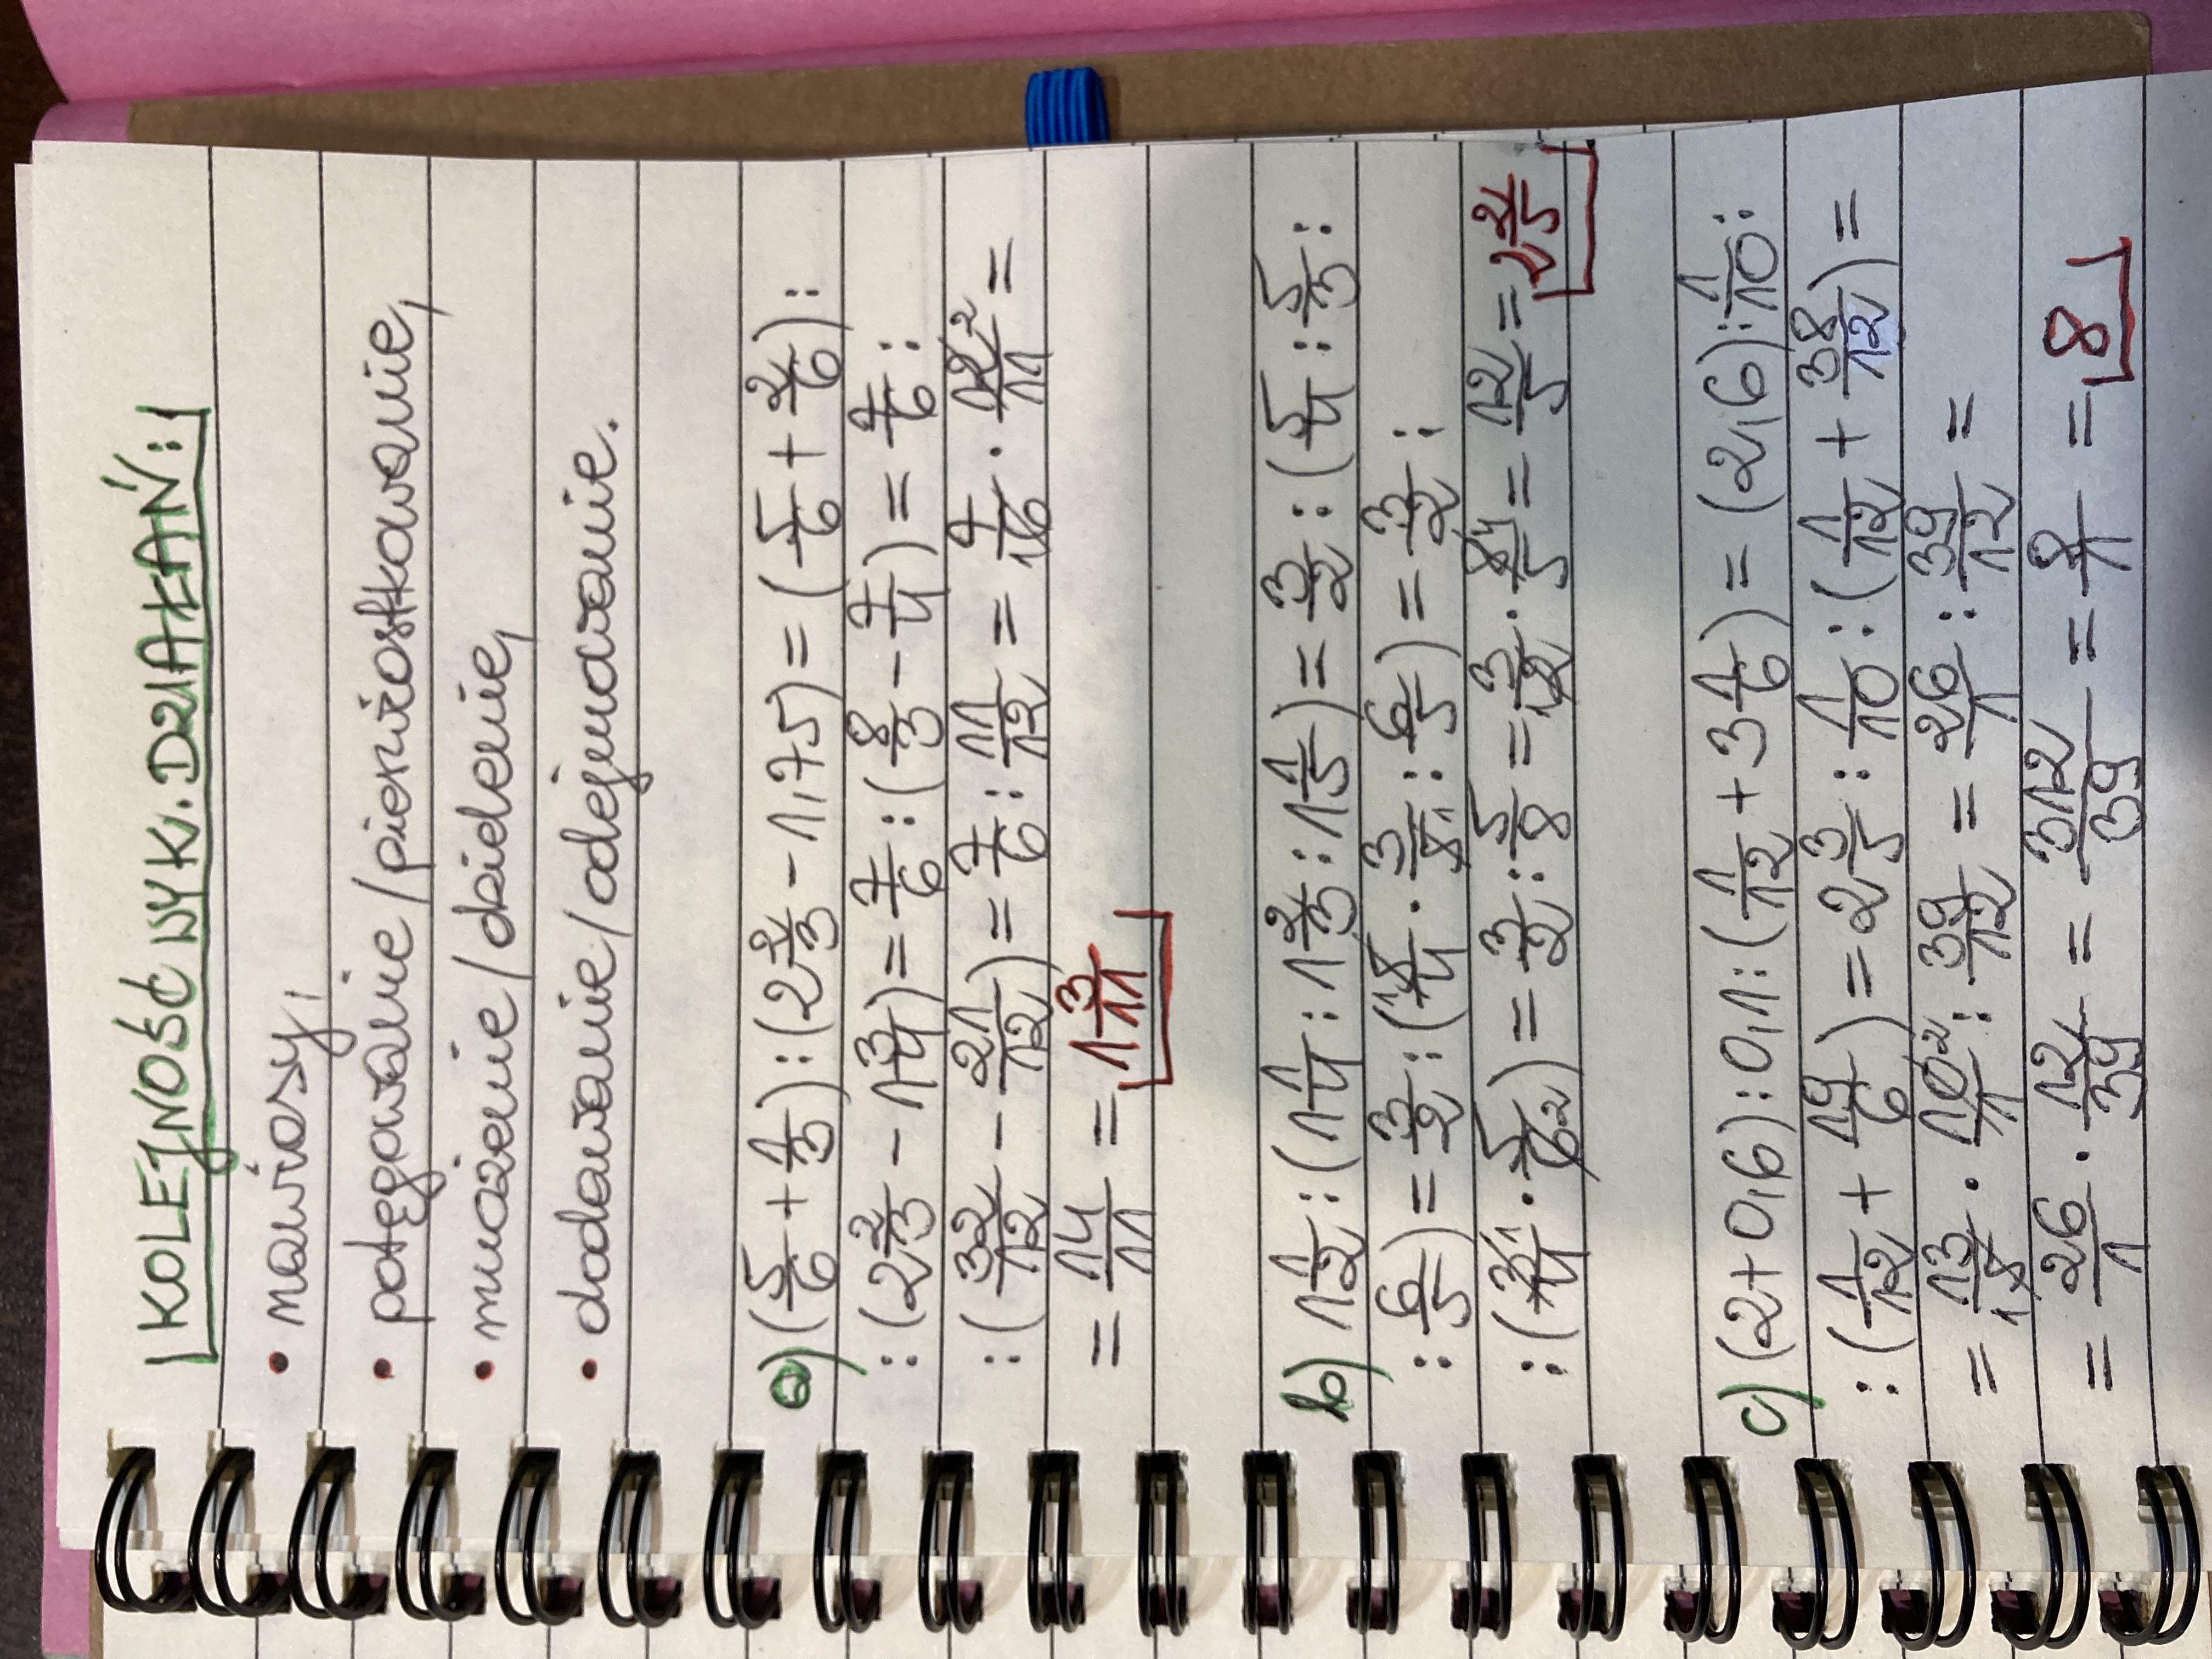 KOLEJNOŚĆ WYK. DZIAŁAŃ:
• nawiasy,
• potęgowanie/pierwiastkowanie,
• mnożenie/dzielenie,
• dodawanie/odejmowanie.
a) (5/6 + 1/3) : (2 2/3 - 1,75) = (5/6 + 2/6) :
: (2 2/3 - 1 3/4) = 7/6 : (8/3 - 7/4) = 7/6 :
: (32/12 - 21/12) = 7/6 : 11/12 = 7/6 1 · 12 2/11 =
= 14/11 = 1 3/11
b) 1 1/2 : (1 1/4 : 1 2/3 : 1 1/5) = 3/2 : (5/4 : 5/3 :
: 6/5) = 3/2 : (5 1/4 · 3/5 1 : 6/5) = 3/2 :
: (3 1/4 · 5/6 2) = 3/2 : 5/8 = 3/2 1 · 8 4/5 = 12/5 = 2 2/5
c) (2 + 0,6) : 0,1 : (1/12 + 3 1/6) = (2,6) : 1/10 :
: (1/12 + 19/6) = 2 3/5 : 1/10 : (1/12 + 38/12) =
= 13/5 1 · 10 2/1 : 39/12 = 26/1 : 39/12 =
= 26/1 · 12/39 = 312/39 = 8/1 = 8